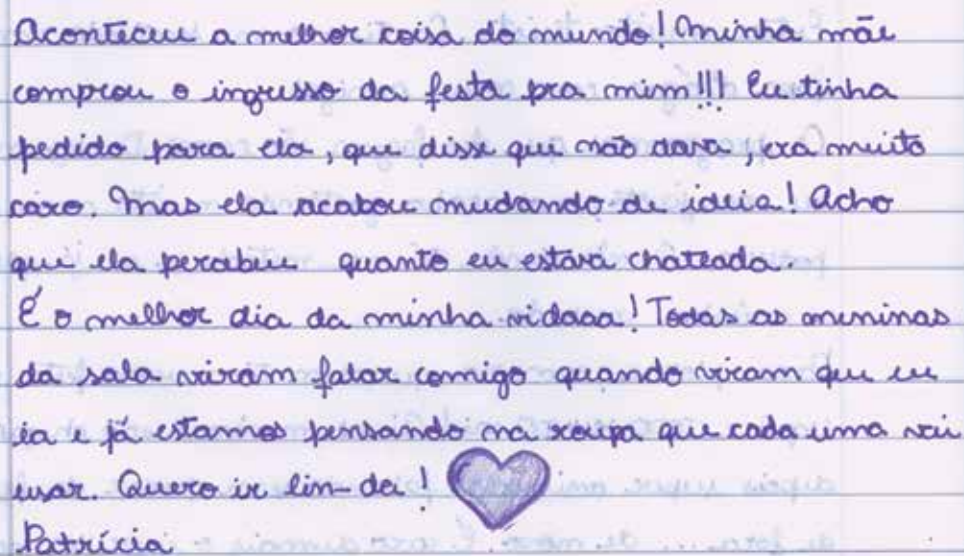 Aconteceu a melhor coisa do mundo! Minha mãe
comprou o ingresso da festa pra mim!!! Eu tinha
pedido para ela, que disse que não dava, era muito
caro. Mas ela acabou mudando de ideia! Acho
que ela percebeu quanto eu estava chateada.
É o melhor dia da minha vidaaa! Todas as meninas
da sala vieram falar comigo quando viram que eu
ia e já estamos pensando na roupa que cada uma vai
usar. Quero ir lin-da!
Patrícia